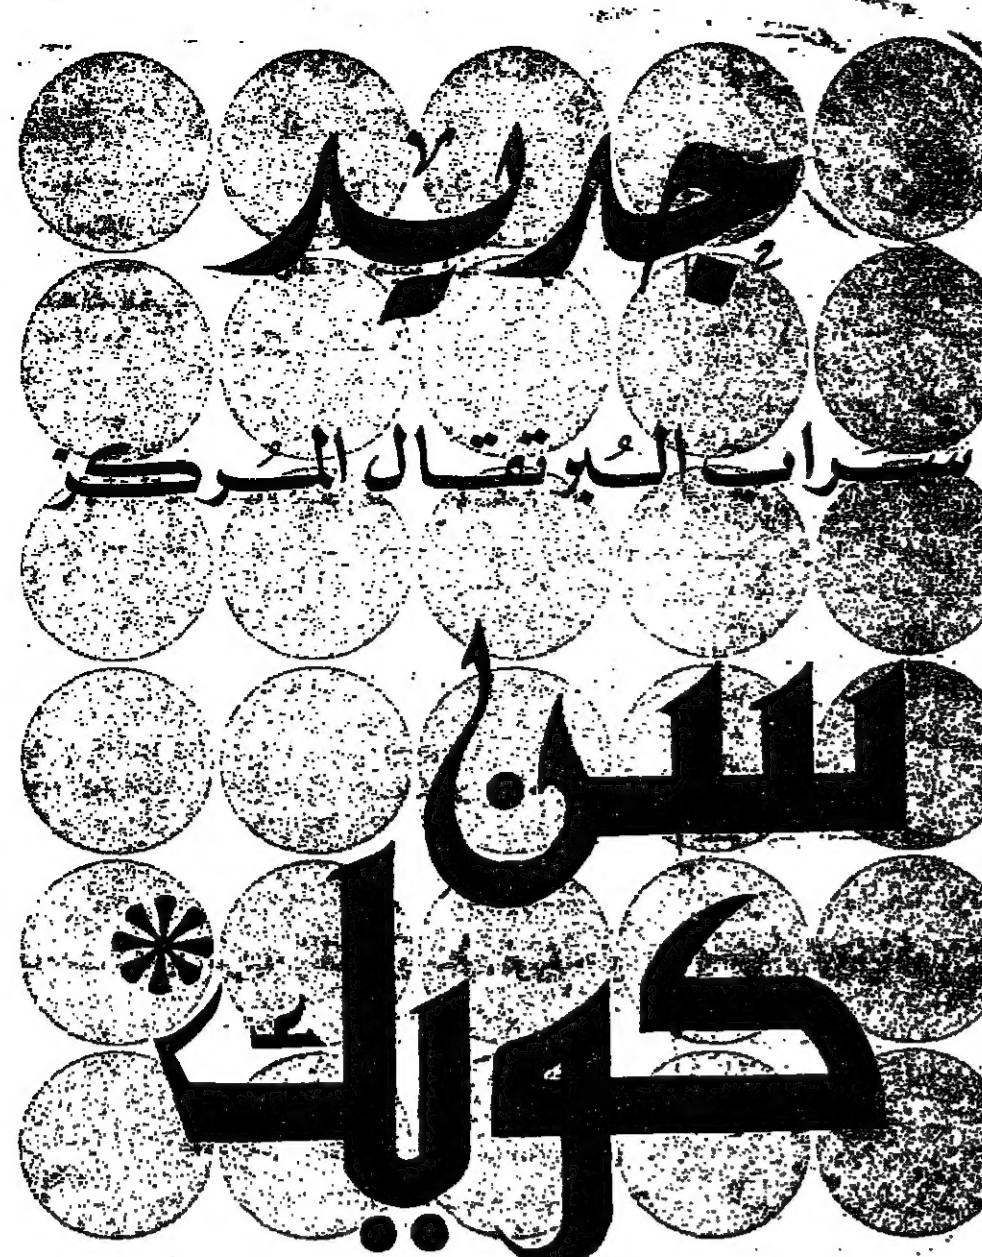 جديد
شراب البُرتقال المُركز
سن
كويك*